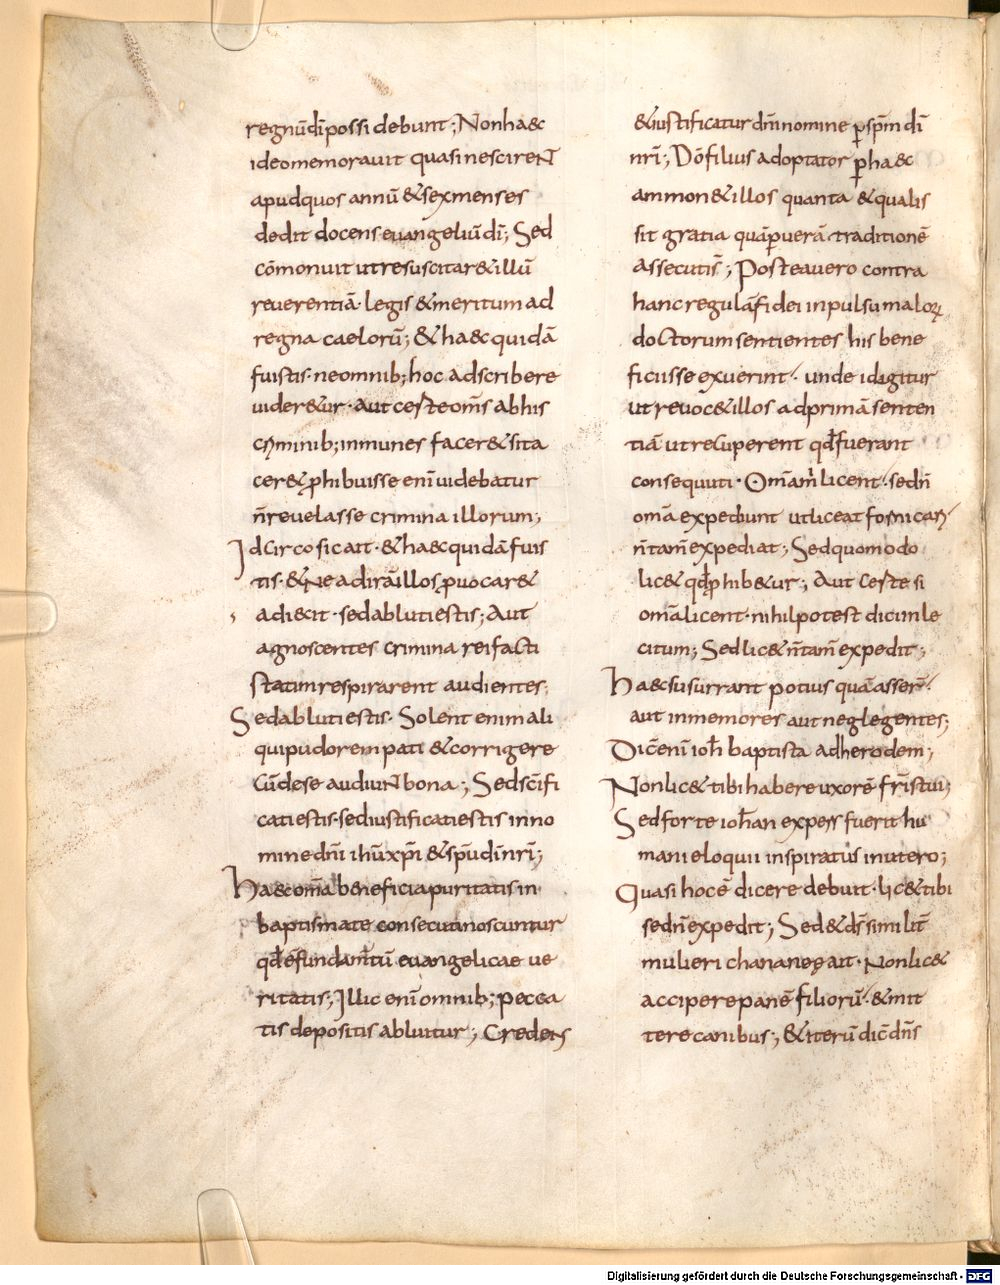 regnūdīpossidebunt; Nonha&c
ideomemorauit quasinescireN
apudquos annū &sexmenses
dedit docenseuangeliūdī; Sed
cōmonuit utresuscitar&illū
reuerentiā· legis &meritumad
regna caelorū; &ha&cquidā
fuistis· neomnib; hoc adscribere
uider&ur· Aut certeom̄s abhis
criminib; inmunes facer&sita
cer& ꝓhibuisse enī uidebatur
n̄reuelasse crimina illorum;
Idcircosicait· &ha&cquidāfuis
tis· &Neadirāillosꝓuocar&
adi&cit· sedablutiestis; Aut
agnoscentes crimina reifacti
statimrespirarent audientes;
Sedablutiestis· Solent enimali
quipudorempati &corrigere
Cūdese audiuNt bona; Sedsc̄ifi
catiestis· sediustificatiestis inno
minedn̄i ihūxpī &sp̄udīnrī;
Ha&com̄a beneficiapuritatisin
baptismate consecutinoscuntur
qd̄ēfundam̄tū euangelicae ue
ritatis; Illic enīomnib; pecca
tis depositis abluitur; Credens
&iustificatur dn̄inomine ꝑsp̄m dī
nrī; Dōfilius adoptator ꝑha&c
ammon&illos quanta &qualis
sit gratia quāꝑuerā traditionē
assecutis̄; Posteauero contra
hancregulāfidei inpulsumaloꝝ
doctorumsentientes his bene
ficiisse exuerint· unde idagitur
ut reuoc&illos adprimāsenten
tiā utrecuperent qd̄fuerant
consequuti· Om̄am̄licent· sedn̄
om̄aexpediunt utliceatfornicari
n̄tam̄expediat; Sedquomodo
lic& qd̄ꝓhib&ur; Aut certe si
om̄alicent· nihilpotest diciinle
citum; Sedlic&n̄tam̄ expedit;
Ha&csusurrant potius quāasser̄·
aut inmemores autneglegentes;
Dic̄enī ioh̄ baptista adherodem;
Nonlic&tibihabereuxorē fr̄istui;
Sedforte ioh̄an expers fuerit hu
manieloquii inspiratus inutero;
Quasi hocē dicere debuit· lic&tibi
sedn̄expedit; Sed&dn̄s simil̄it
mulieri chananeę ait· Nonlic&
accipere panē filiorū· &mit
tere canibus; &iterū dic̄dn̄s
Digitalisierung gefördert durch die Deutsche Forschungsgemeinschaft - DFG